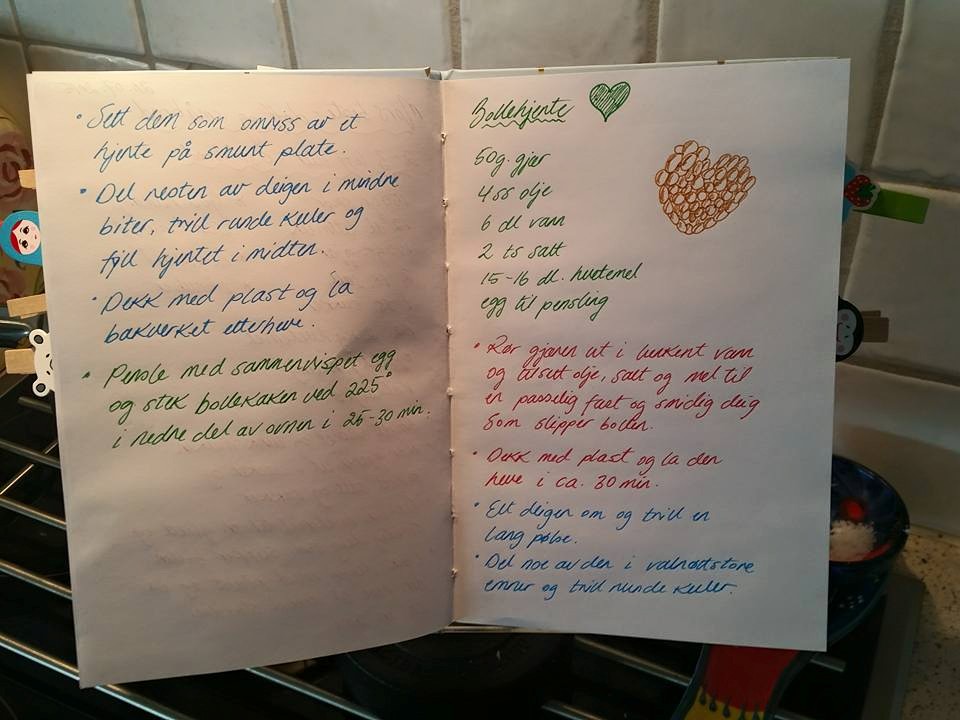 • Sett dem som omriss av et
hjerte på smurt plate.
• Del resten av deigen i mindre
biter, trill runde kuler og
fyll hjertet i midten.
• Dekk med plast og la
bakverket etterheve.
• Pensle med sammenvispet egg
og stek bollekaken ved 225°
i nedre del av ovnen i 25-30 min.
Bollehjerte
50g. gjær
4 ss olje
6 dl vann
2 ts salt
15-16 dl. hvetemel
egg til pensling
• Rør gjæren ut i lunkent vann
og tilsett olje, salt og mel til
en passelig fast og smidig deig
som slipper bollen.
• Dekk med plast og la den
heve i ca. 30 min.
• Elt deigen om og trill en
lang pølse.
• Del noe av den i valnøttstore
emner og trill runde kuler.